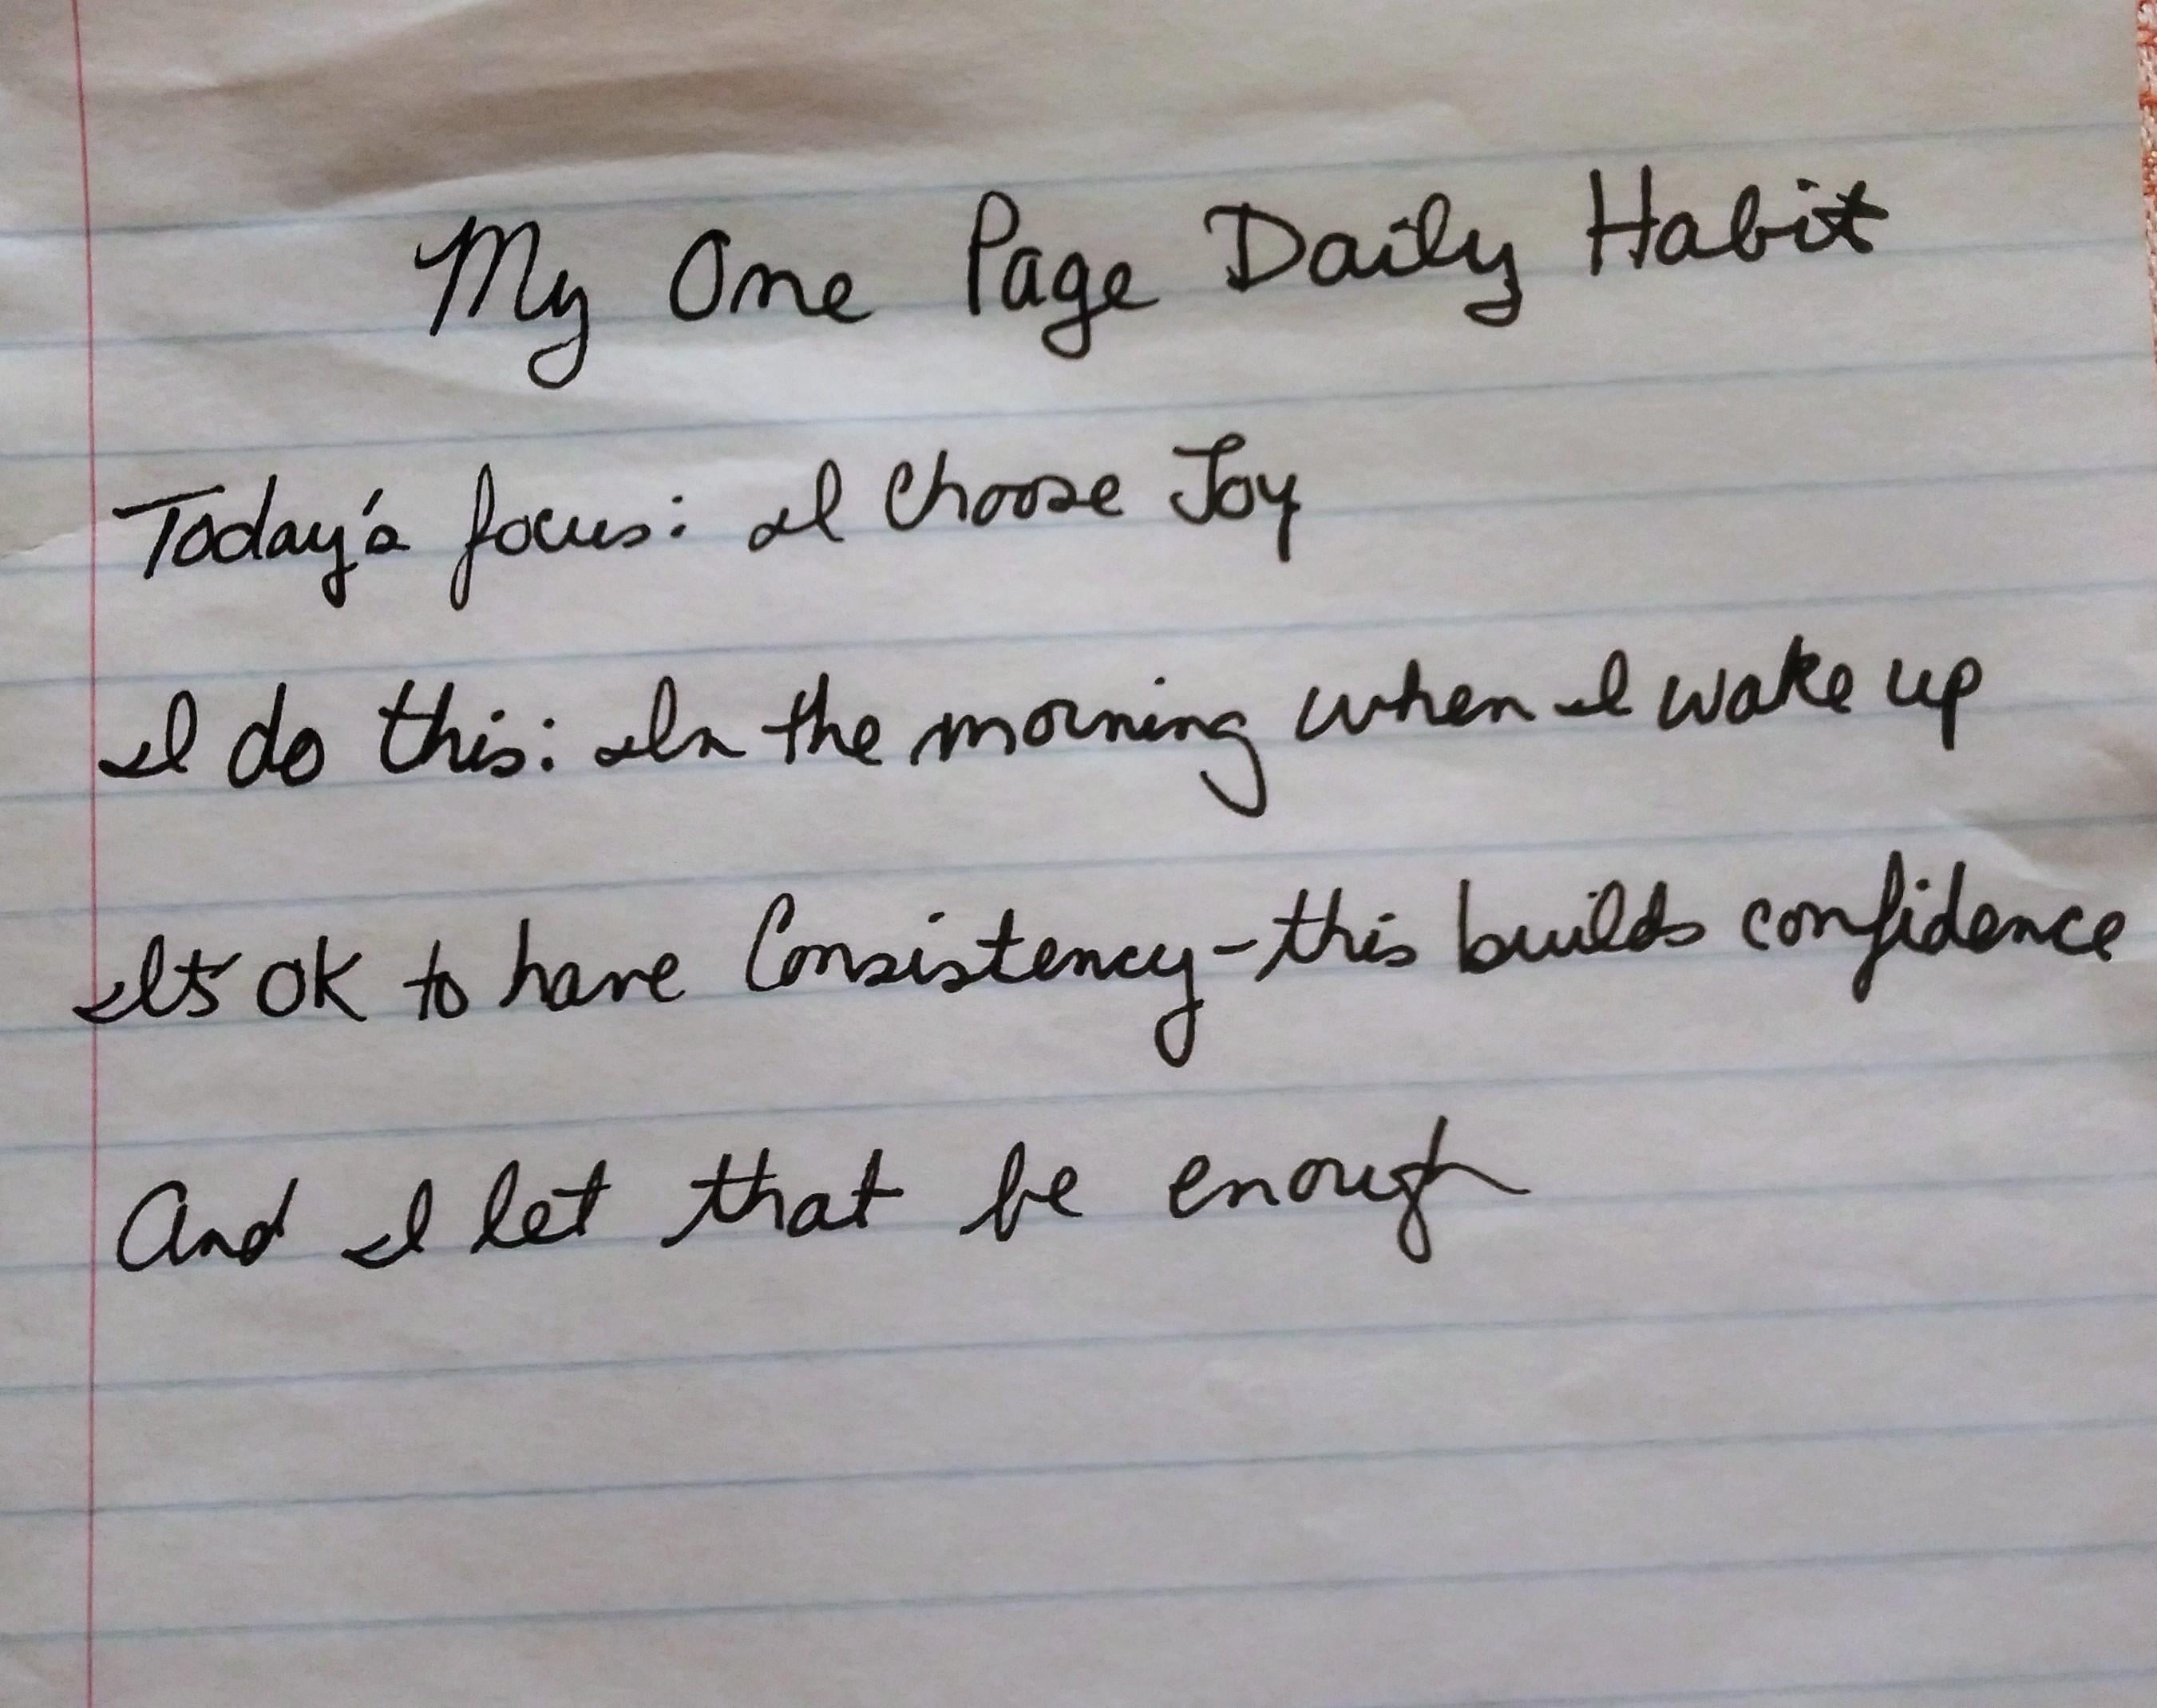 My One Page Daily Habit
Today's focus: I Choose Joy
I do this: In the morning when I wake up
Its OK to have Consistency-this builds confidence
And I let that be enough